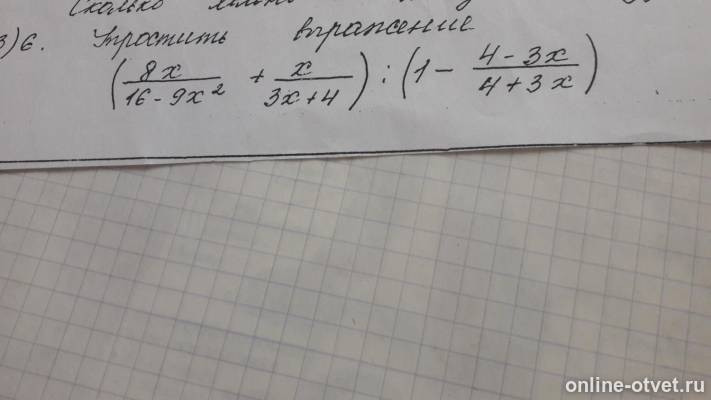 Сколько
3) 6. Упростить выражение
(8x/(16-9x²) + x/(3x+4)) : (1 - (4-3x)/(4+3x))
online-otvet.ru